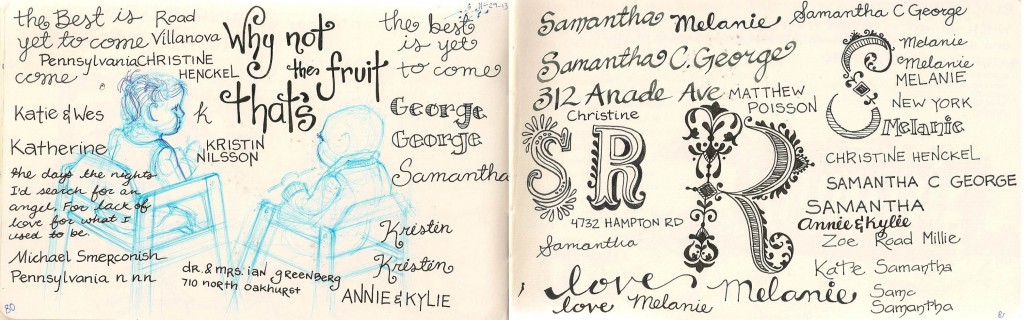 the Best is
yet to come
come
Road
Villanova
Pennsylvania
CHRISTINE
HENCKEL
Why not
then fruit
that's
11-29-13
the best
is yet
to come
Katie & Wes
k
George
George
Katherine
KRISTIN
NILSSON
Samantha
the days the nights
I'd search for an
angel. For lack of
love for what I
used to be.
Kristen
Kristen
Michael Smerconish
Pennsylvania n n n
dr. & mrs. ian greenberg
710 north oakhurst
ANNIE & KYLIE
80
Samantha
Melanie
Samantha C George
Samantha C. George
312 Anade Ave
MATTHEW
POISSON
Christine
S R R S
Melanie
Melanie
MELANIE
NEW YORK
Melanie
CHRISTINE HENCKEL
SAMANTHA C GEORGE
SAMANTHA
Annie & Kylie
Zoe Road Millie
4732 HAMPTON RD
Samantha
Kate Samantha
love
love
Melanie
Melanie
Same
Samantha
81